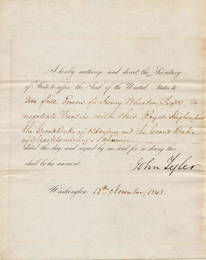 I hereby authorize and direct the Secretary
of State to affix the Seal of the United States to
two full Powers to Henry Wheaton, Esqre, to
negotiate Treaties with their Royal Highnesses
the Grand Duke of and the Grand Duke
of Mecklenburg Schwerin
dated this day, and signed by me and for so doing this
shall be his warrant.
John Tyler
Washington, 18th November, 1843.